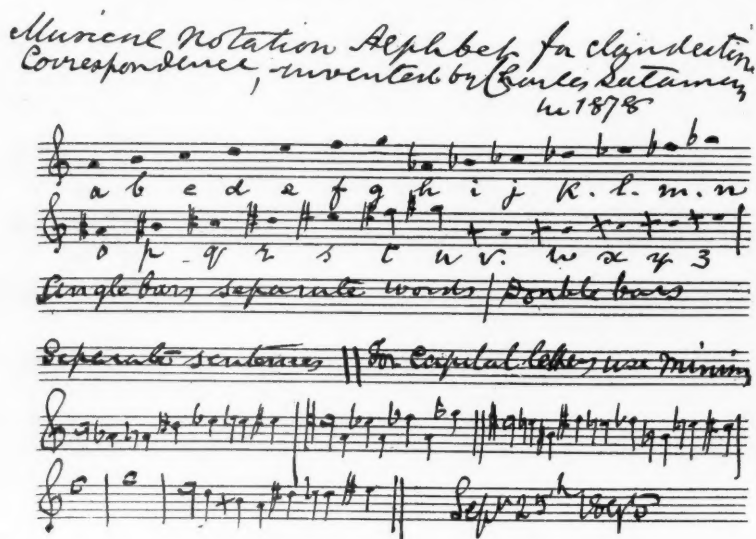 Musical Notation Alphabet for clandestine
Correspondence, invented by Charles Salaman
in 1878
a b c d e f g h i j k. l. m. n
o p q r s t u v. w x y z
Single bars separate words | Double bars
separate sentences || For Capital letters use minim
Sepr 25th